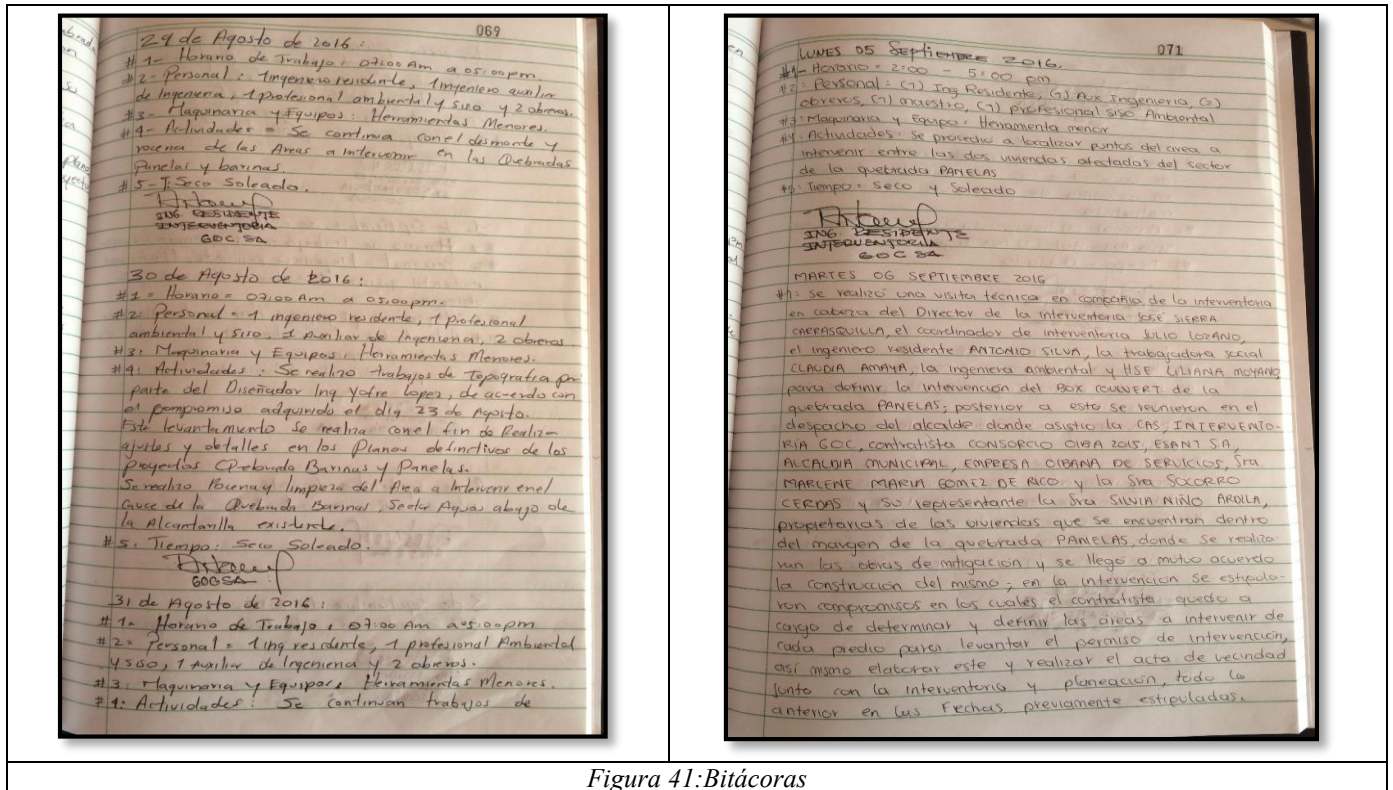 069
29 de Agosto de 2016:
# 1- Horario de Trabajo: 07:00 Am a 05:00pm.
# 2- Personal: 1 ingeniero residente, 1 ingeniero auxiliar
de Ingenieria, 1 profesional ambiental y siso y 2 obreros.
# 3- Maquinaria y Equipos: Herramientas Menores.
# 4- Actividades = Se continua con el desmonte y
roceria de las Areas a intervenir en las Quebradas
Panelas y barinas.
# 5- T: Seco Soleado.
ING. RESIDENTE
INTERVENTORIA
GOC SA
30 de Agosto de 2016:
#1 = Horario = 07:00 Am a 05:00pm.
#2: Personal = 1 ingeniero residente, 1 profesional
ambiental y siso, 1 Auxiliar de Ingenieria, 2 obreros
#3: Maquinaria y Equipos: Herramientas Menores.
#4: Actividades: Se realizo trabajos de Topografia por
parte del Diseñador Ing Yofre Lopez, de acuerdo con
el compromiso adquirido el dia 23 de Agosto.
Este levantamiento se realiza con el fin de Realizar
ajustes y detalles en los Planos definitivos de los
proyectos Quebrada Barinas y Panelas.
Se realizo Roceria y limpieza del Area a Intervenir en el
Cauce de la Quebrada Barinas, Sector Aguas abajo de
la Alcantarilla existente.
#5: Tiempo: Seco Soleado.
GOCSA
31 de Agosto de 2016:
# 1= Horario de Trabajo: 07:00 Am a 05:00pm
# 2= Personal = 1 ing residente, 1 profesional Ambiental
y siso, 1 Auxiliar de Ingenieria y 2 obreros.
# 3: Maquinaria y Equipos: Herramientas Menores.
# 4: Actividades: Se continuan trabajos de
071
LUNES 05 Septiembre 2016.
#1- Horario = 2:00 - 5:00 pm
#2: Personal: (1) Ing Residente, (1) Aux Ingenieria, (2)
obreros, (1) maestro, (1) profesional siso Ambiental
#3: Maquinaria y Equipo: Herramienta menor
#4: Actividades: Se procedio a localizar puntos del area a
intervenir entre las dos viviendas afectadas del sector
de la quebrada PANELAS
#5: Tiempo: Seco y Soleado
ING. RESIDENTE
INTERVENTORIA
GOC SA
MARTES 06 SEPTIEMBRE 2016
#1: Se realizó una visita técnica en compañia de la interventoria
en cabeza del Director de la interventoria JOSÉ SIERRA
CARRASQUILLA, el coordinador de interventoria JULIO LOZANO,
el ingeniero residente ANTONIO SILVA, la trabajadora social
CLAUDIA AMAYA, la ingeniera ambiental y HSE LILIANA MOYANO,
para definir la intervención del BOX COULVERT de la
quebrada PANELAS; posterior a esto se reunieron en el
despacho del alcalde donde asistio la CAS, INTERVENTO-
RÍA GOC, contratista CONSORCIO OIBA 2015, ESANT S.A,
ALCALDIA MUNICIPAL, EMPRESA OIBANA DE SERVICIOS, Sra
MARLENE MARIA GOMEZ DE RICO y la Sra SOCORRO
CERDAS y su representante la Sra SILVIA NIÑO ARDILA,
propietarias de las viviendas que se encuentran dentro
del margen de la quebrada PANELAS, donde se realiza-
ran las obras de mitigación y se llegó a mutuo acuerdo
la construcción del mismo; en la intervención se estipula-
ron compromisos en los cuales el contratista quedo a
cargo de determinar y definir las áreas a intervenir de
cada predio para levantar el permiso de intervención,
así mismo elaborar este y realizar el acta de vecindad
junto con la interventoria y planeación, todo lo
anterior en las Fechas previamente estipuladas.
Figura 41:Bitácoras